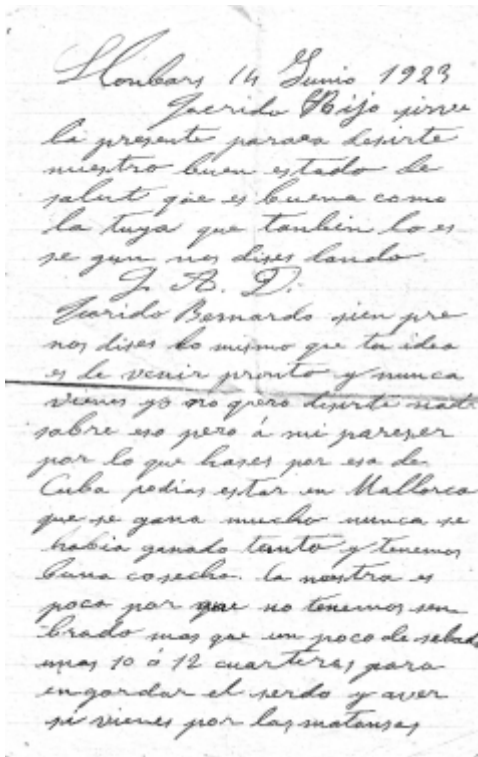 Llonbars 14 Junio 1923
Querido Hijo sirve
la presente paraea desirte
nuestro buen estado de
salut que es buena como
la tuya que tanbien lo es
se gun nos dises lando.
J. A. D.
Qarido Bernardo sien pre
nos dises lo mismo que tu idea
es de venir pronto y nunca
vienes yo no qero disirte nad
sobre eso pero á mi pareser
por lo que hases por esa de
Cuba podias estar en Mallorca
que se gana mucho nunca se
habia ganado tento y tenemos
buna cosecho. la nostra es
poco por que no tenemos sen
brado mas que un poco de sebada
unas 10 ó 12 cuarteres para
engordar el serdo y aver
si vienes por las matanses